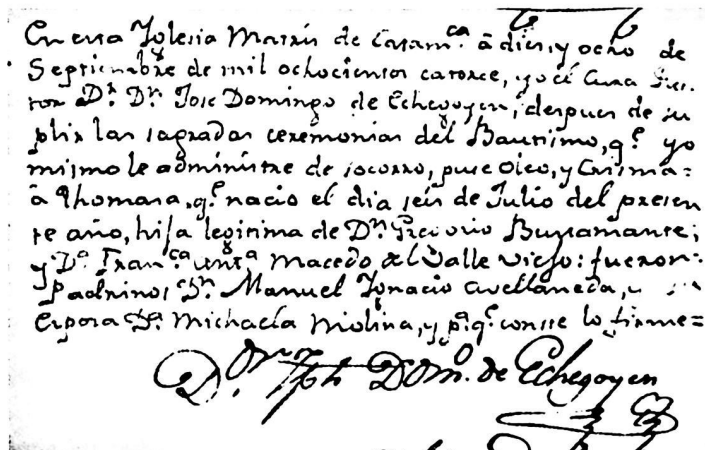 En esta Iglesia Matris de Catam.ca â dies, y ocho de
Septiembre de mil ochocientos catorce, yo el Cura Rec-
tor D.r D.n Jose Domingo de Echegoyen, despues de su
plir las sagradas ceremonias del Bautismo, q.e yo
mismo le administre de socorro, puse oleo, y Crisma=
â Thomasa, q.e nacio el dia seis de Julio del presen
te año, hija legitima de D.n Gregorio Bustamante;
y D.a Fran.ca Ant.a Macedo del Valle viejo: fueron
Padrinos D.n Manuel Ignacio Avellaneda, y su
Esposa D.a Michaela Molina, y p.a q.e conste lo firme=
D.or Jph Dom.o de Echegoyen